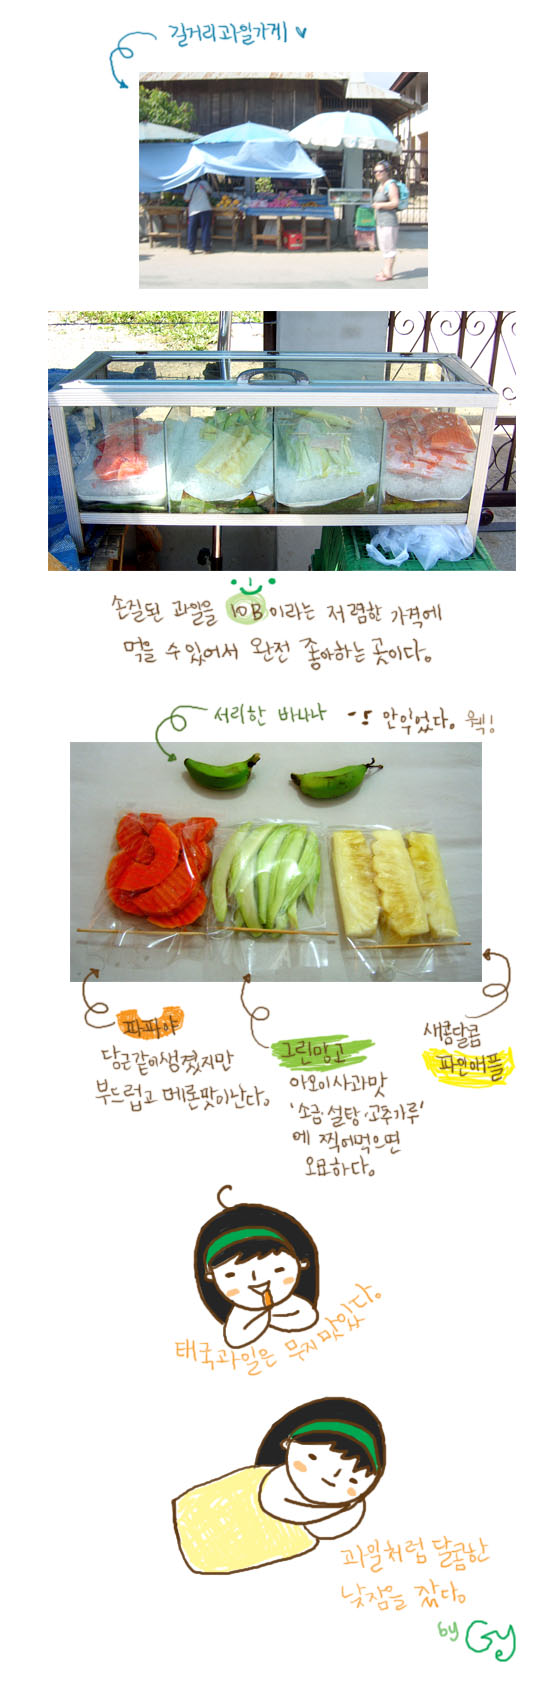 길거리과일가게
손질된 과일을 10B이라는 저렴한 가격에
먹을 수 있어서 완전 좋아하는 곳이다.
서리한 바나나 안익었다. 웩!
파파야
당근같이생겼지만
부드럽고 메론맛이난다.
그린망고
아오이사과맛
'소금·설탕·고추가루'
에 찍어먹으면
오묘하다.
새콤달콤
파인애플
태국과일은 무지맛있다.
과일처럼 달콤한
낮잠을 잤다.
by Gye